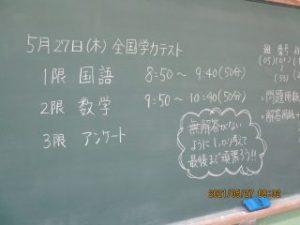 5月27日(木) 全国学力テスト
1限 国語 8:50～9:40(50分)
2限 数学 9:50～10:40(50分)
3限 アンケート
無解答がない
ようにしっかり考えて
最後まで頑張ろう!!
組 番号
・問題用紙
・解答用紙